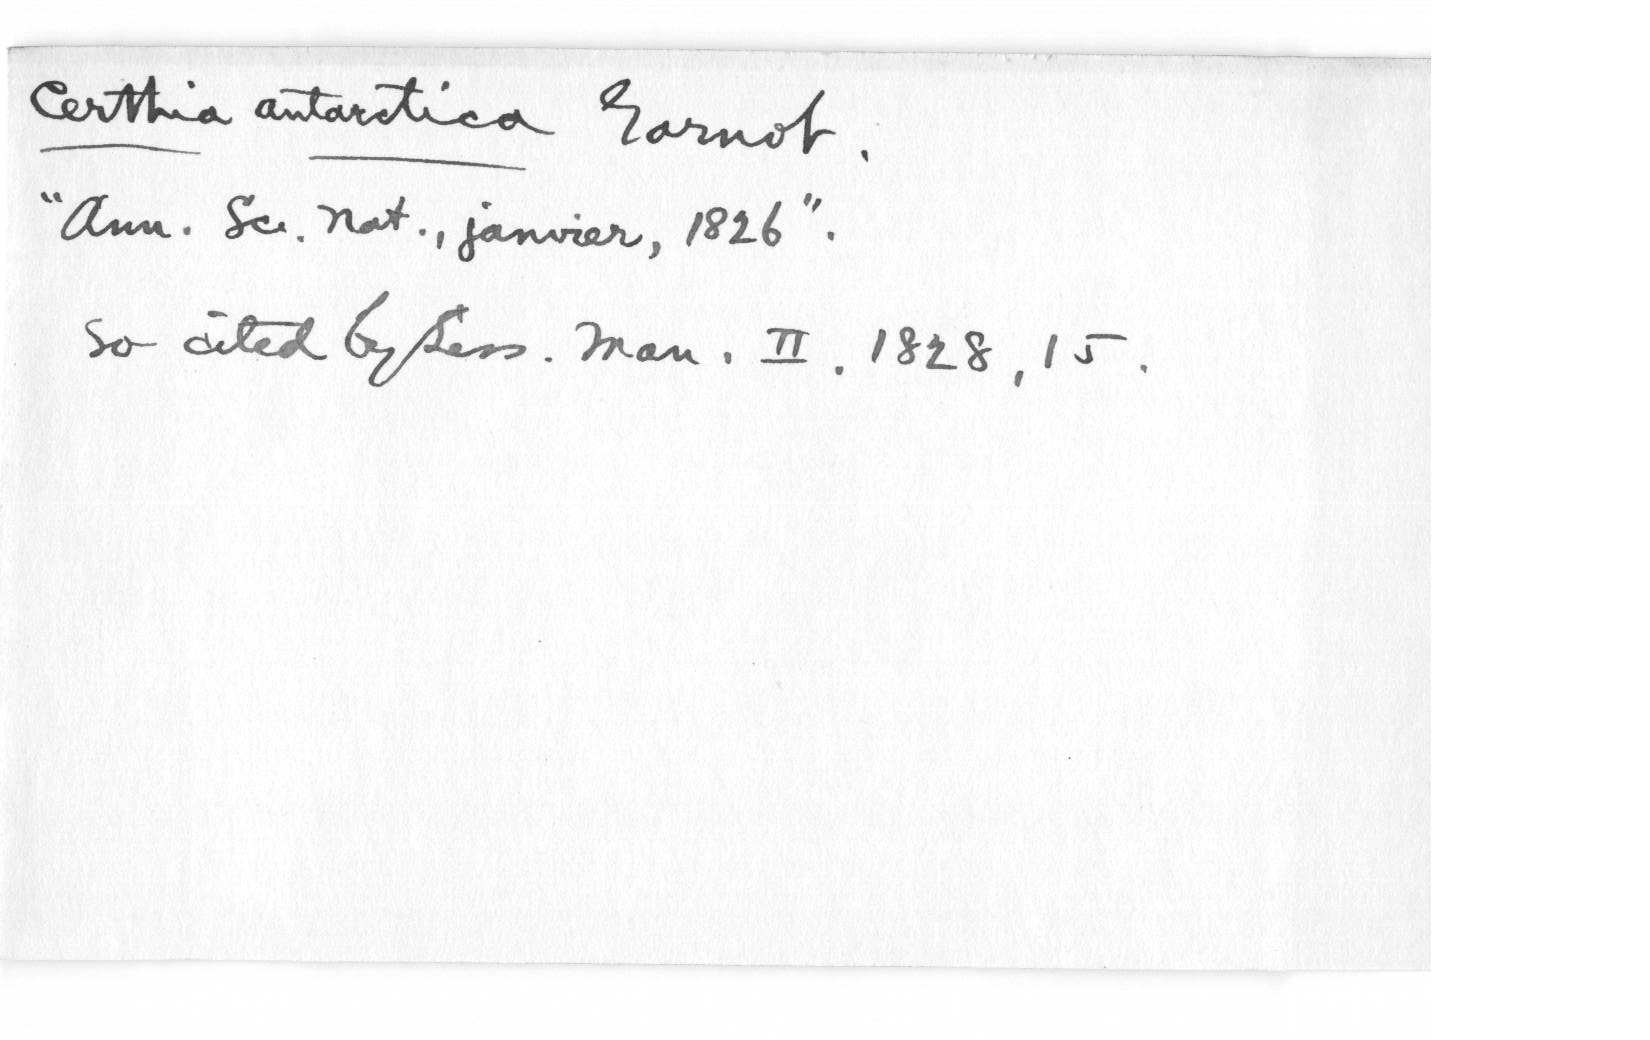 Certhia antarctica Garnot.
"Ann. Sc. Nat., janvier, 1826".
So cited by Less. Man. II. 1828, 15.